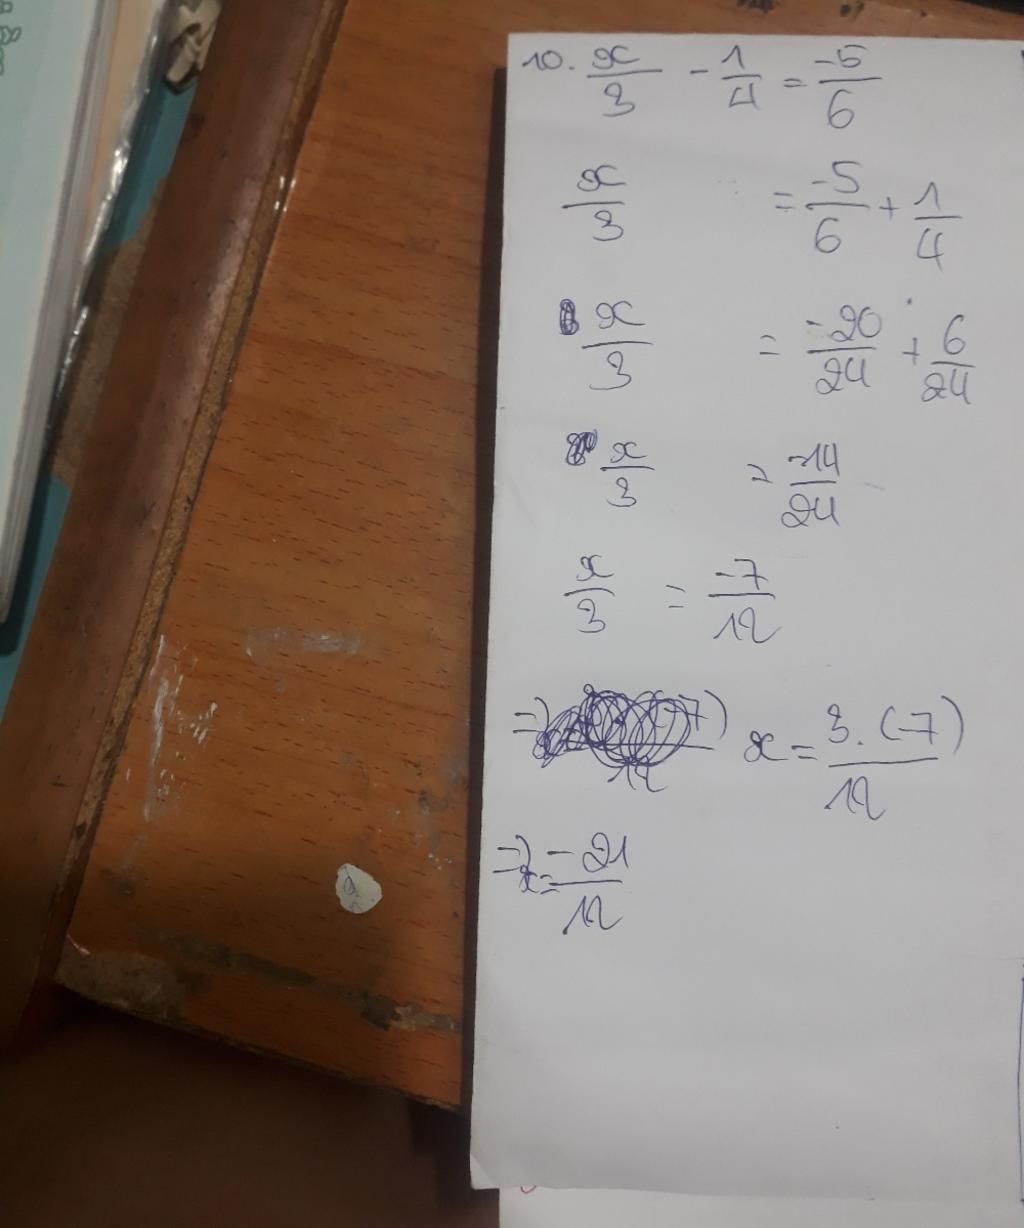 10. x/3 - 1/4 = -5/6
x/3 = -5/6 + 1/4
x/3 = -20/24 + 6/24
x/3 = -14/24
x/3 = -7/12
=> x = 3.(-7)/12
=> x = -21/12